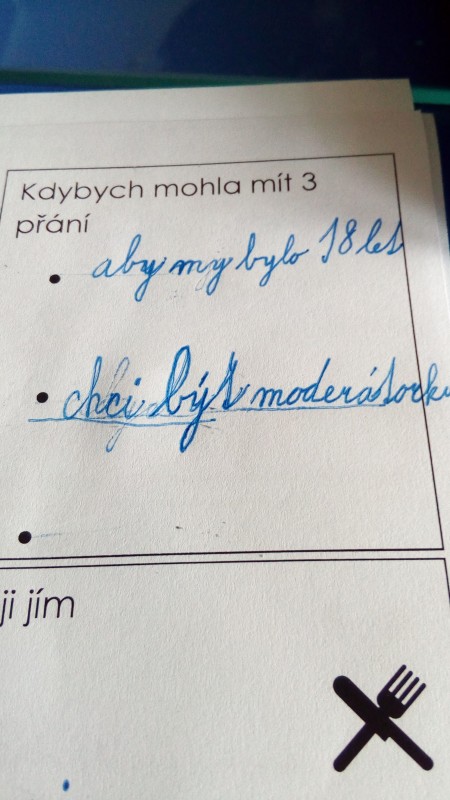 Kdybych mohla mít 3
přání
aby my bylo 18 let
chci být moderátorku
ji jím